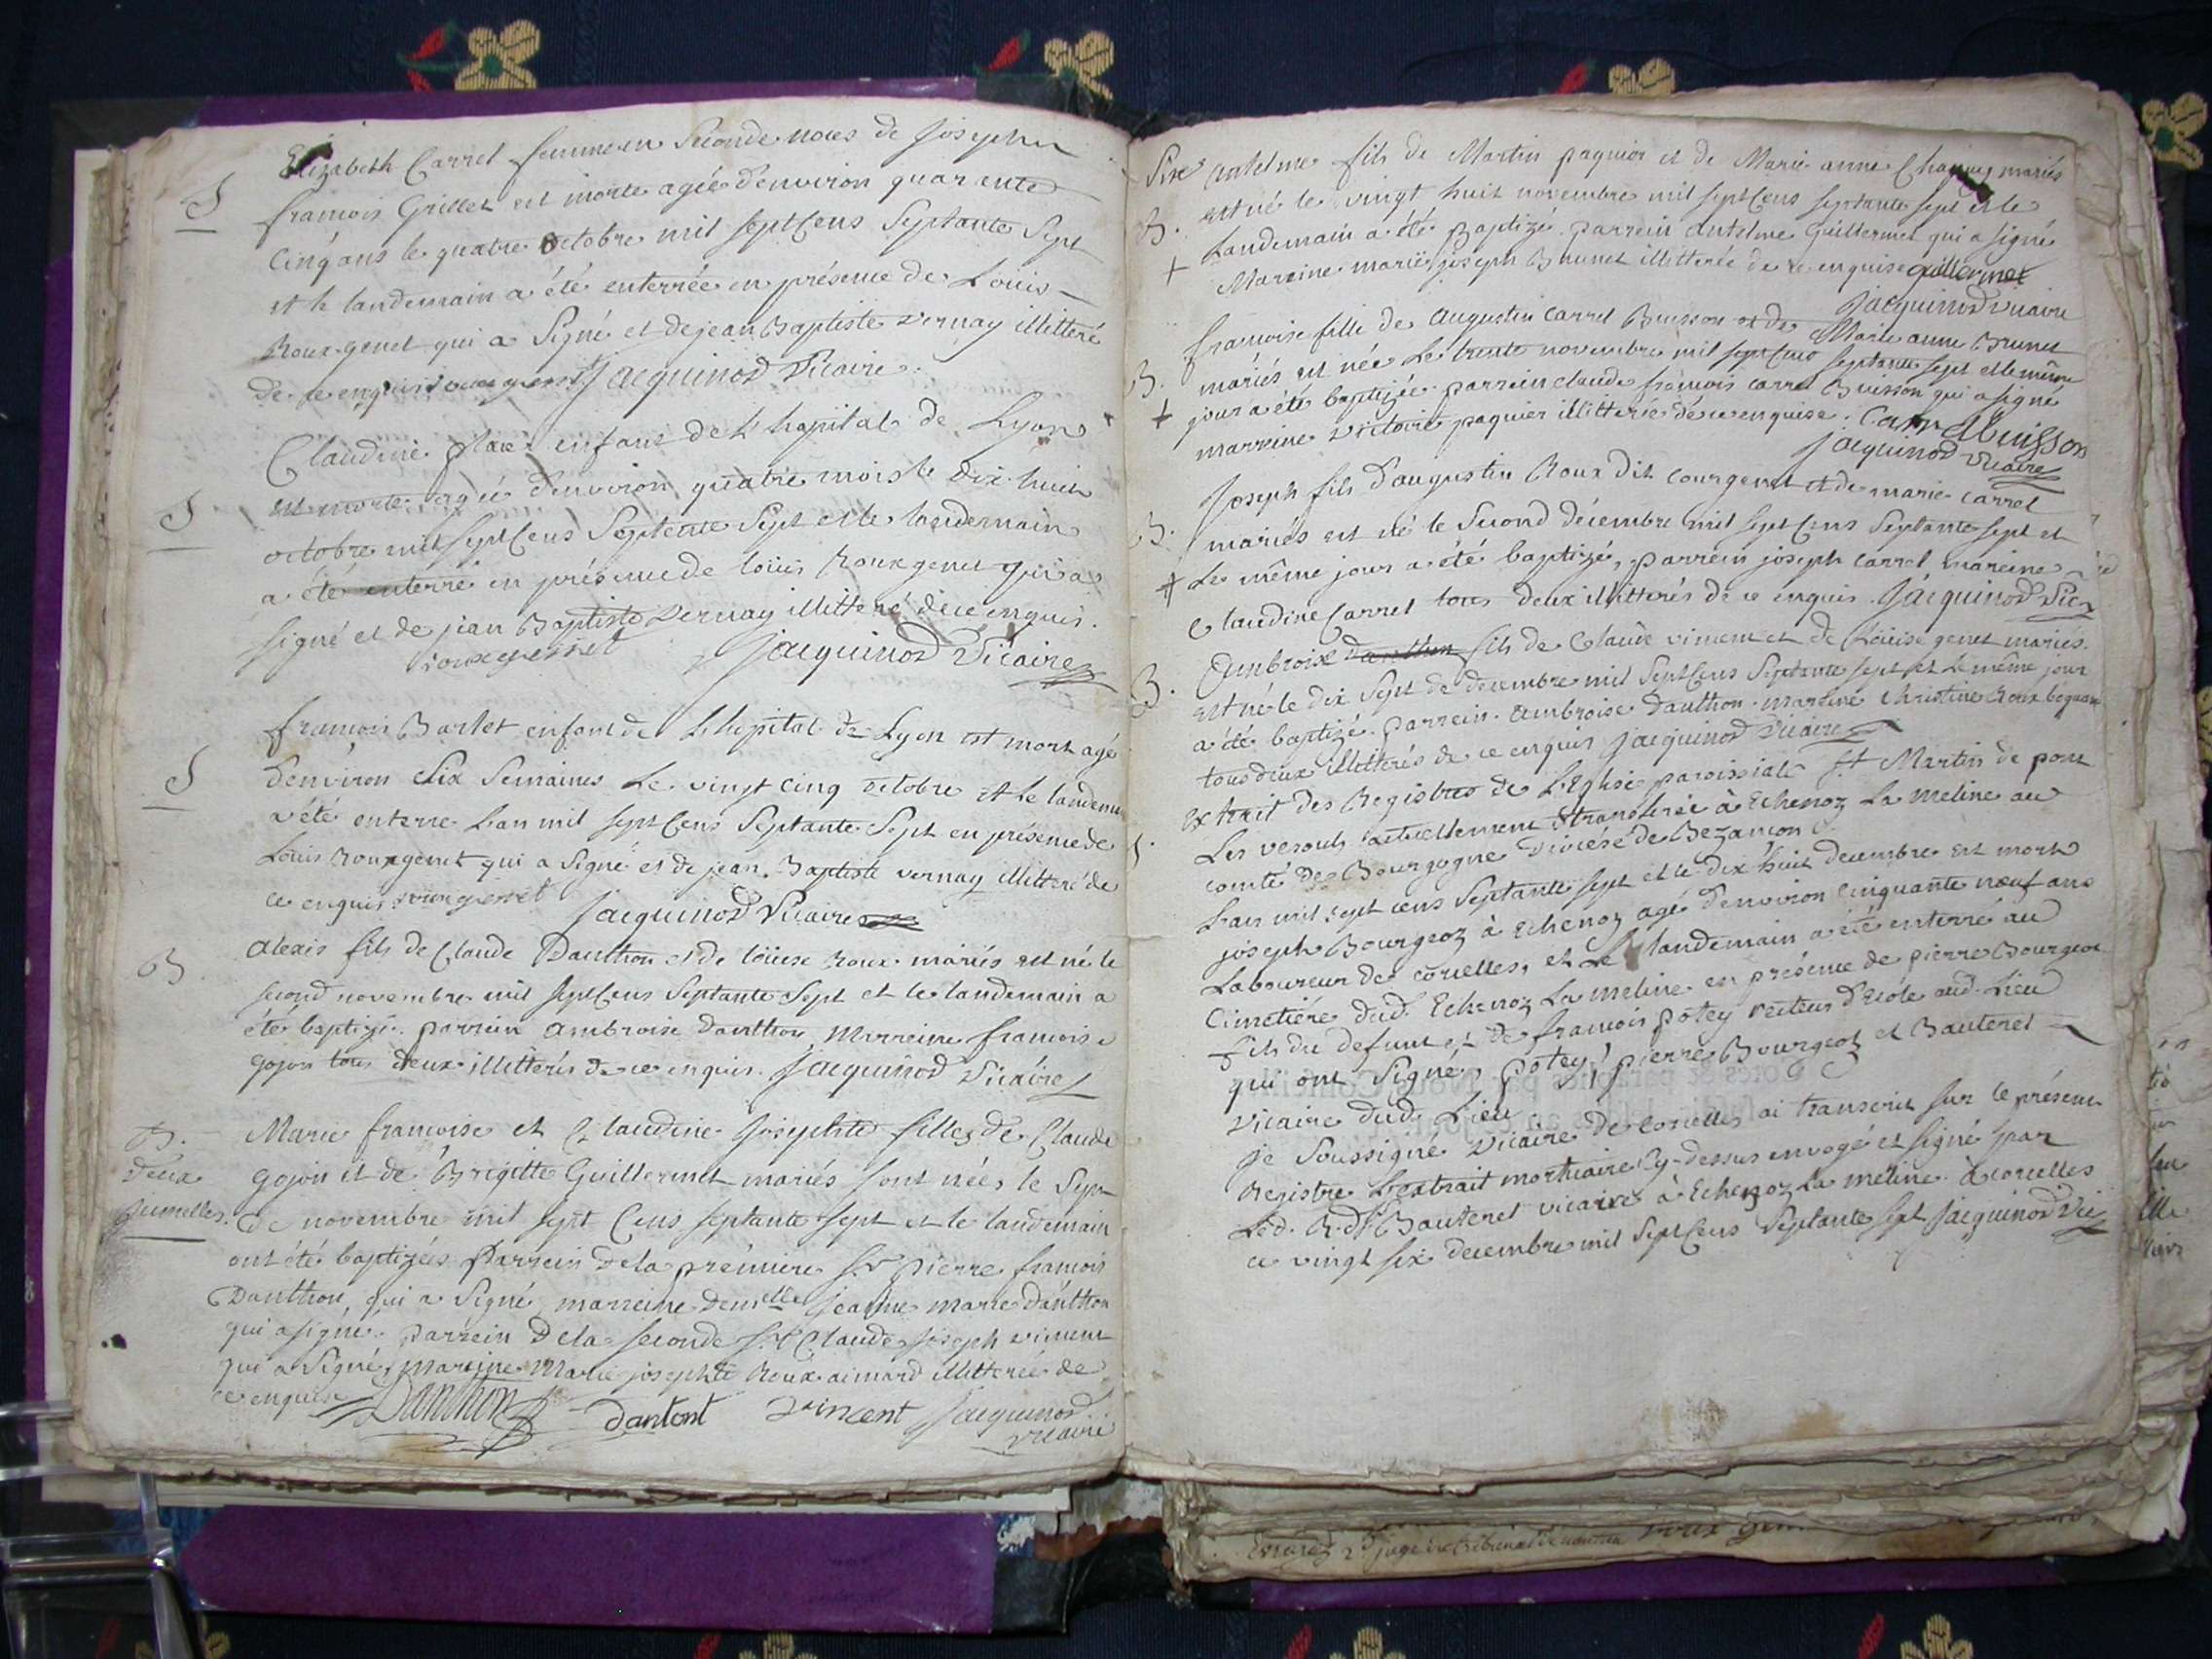 Elizabeth Carrel femme en Seconde noces de Joseph
S
francois Grillet est morte agée d'environ quarante
Cinq ans le quatre octobre mil sept Cens Septante Sept
et le landemain a été enterrée en présence de Loüis
Roux genet qui a Signé et de jean Baptiste vernay illitteré
de ce enquis rouxgenet Jacquinod Vicaire
Claudine place enfant de L'hopital de Lyon
S
est morte agée d'environ quatre mois le dix huit
octobre mil sept Cens Septante Sept et le landemain
a été enterré en présence de loüis Roux genet qui a
signé et de jean Baptiste vernay illitteré de ce enquis.
rouxgennet Jacquinod Vicaire
francois Barlet enfant de L'hopital de Lyon est mort agé
S
d'environ Six Semaines Le vingt cinq octobre et le landemain
a été enterré L'an mil sept Cens Septante Sept en présence de
Loüis Rouxgenet qui a Signé et de jean Baptiste vernay illitteré de
ce enquis rouxgenet Jacquinod Vicaire
B
alexis fils de Claude Danthon et de loüise Roux mariés est né le
second novembre mil sept Cens Septante Sept et le landemain a
été baptizé. parrein ambroise danthon, Marreine francoise
gojon tous deux illitterés de ce enquis. Jacquinod Vicaire
B.
deux
Jumelles.
Marie francoise et Claudine Josephte filles de Claude
gojon et de Brigitte Guillermet mariés sont nées le Sept
de novembre mil sept Cens septante sept et le landemain
ont été baptizées parrein de la prémiere Sr pierre francois
Danthon, qui a Signé, marreine demelle jeanne marie danthon
qui a signé. parrein de la seconde Sr Claude joseph vincent
qui a Signé, marreine Marie josephte Roux aimard illitterée de
ce enquise Danthon dantont vincent Jacquinod
vicaire
Sire antelme fils de Martin paquier et de Marie anne mariés
B.
est né le vingt huit novembre mil sept Cens septante sept et le
Landemain a été Baptizé. parrein antelme Guillermet qui a signé
+
Marreine marie joseph Brunet illitterée de ce enquise guillermet
Jacquinod vicaire
francoise fille de augustin Carrel Buisson et de Marie anne Brunet
B.
mariés est née Le trente novembre mil sept Cens septante sept et le même
+
jour a été baptizée parrein claude francois carrel Buisson qui a signé
marreine victoire paquier illitterée de ce enquise. Carrel buisson
jacquinod vicaire
Joseph fils d'augustin Roux dit courgenet et de marie carrel
B.
mariés est né le Second décembre mil sept Cens Septante sept et
+
Le même jour a été baptizé, parrein joseph carrel mareine
Claudine Carrel tous deux illitterés de ce enquis. Jacquinod Vic
B.
Ambroise danthon fils de Claude vincent et de Loüise genet mariés.
est né le dix Sept de decembre mil Sept Cens Septante sept et le même jour
a été baptizé. parrein. ambroise danthon. mareine Christine Roux
tous deux illitterés de ce enquis Jacquinod Vicaire
extrait des Registres de L'Eglise paroissiale St Martin de pont
S.
Les vesouls actuellement transferée à Echenoz La meline au
comté de Bourgogne Diocése de Bezançon
L'an mil sept cens septante sept et le dix huit decembre est mort
joseph Bourgeoz à Echenoz agé d'environ cinquante neuf ans
Laboureur de corcelles, et Le landemain a été enterré au
Cimetiére dud. Echenoz La meline en présence de pierre Bourgeoz
fils du defunt et de francois potey recteur d'Ecóle aud. Lieu
qui ont Signé, potey, pierre Bourgeoz et Bautenet
Vicaire dud. Lieu
je Soussigné Vicaire de corcelles ai transcrit sur le présent
Registre L'extrait mortuaire cy-dessus envoyé et signé par
Led. R. dr Bautenet vicaire à Echenoz La meline. à corcelles
ce vingt six decembre mil Sept Cens Septante sept Jacquinod Vic